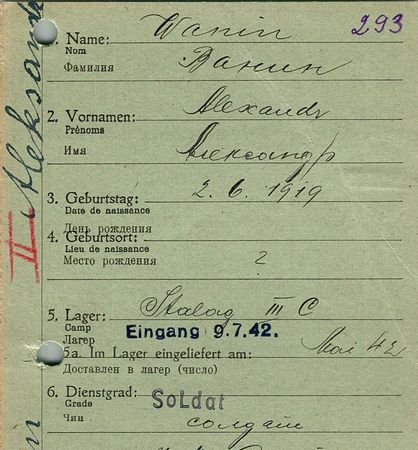 293
1. Name: Wanin
Nom
Фамилия Ванин
2. Vornamen: Alexandr
Prénoms
Имя Александр
3. Geburtstag: 2. 6. 1919
Date de naissance
День рождения
4. Geburtsort:
Lieu de naissance
Место рождения ?
5. Lager: Stalag III C
Camp
Лагер Eingang 9.7.42.
5a. Im Lager eingeliefert am: Mai 42
Доставлен в лагер (число)
6. Dienstgrad: Soldat
Grade
Чин солдат
II Aleksand